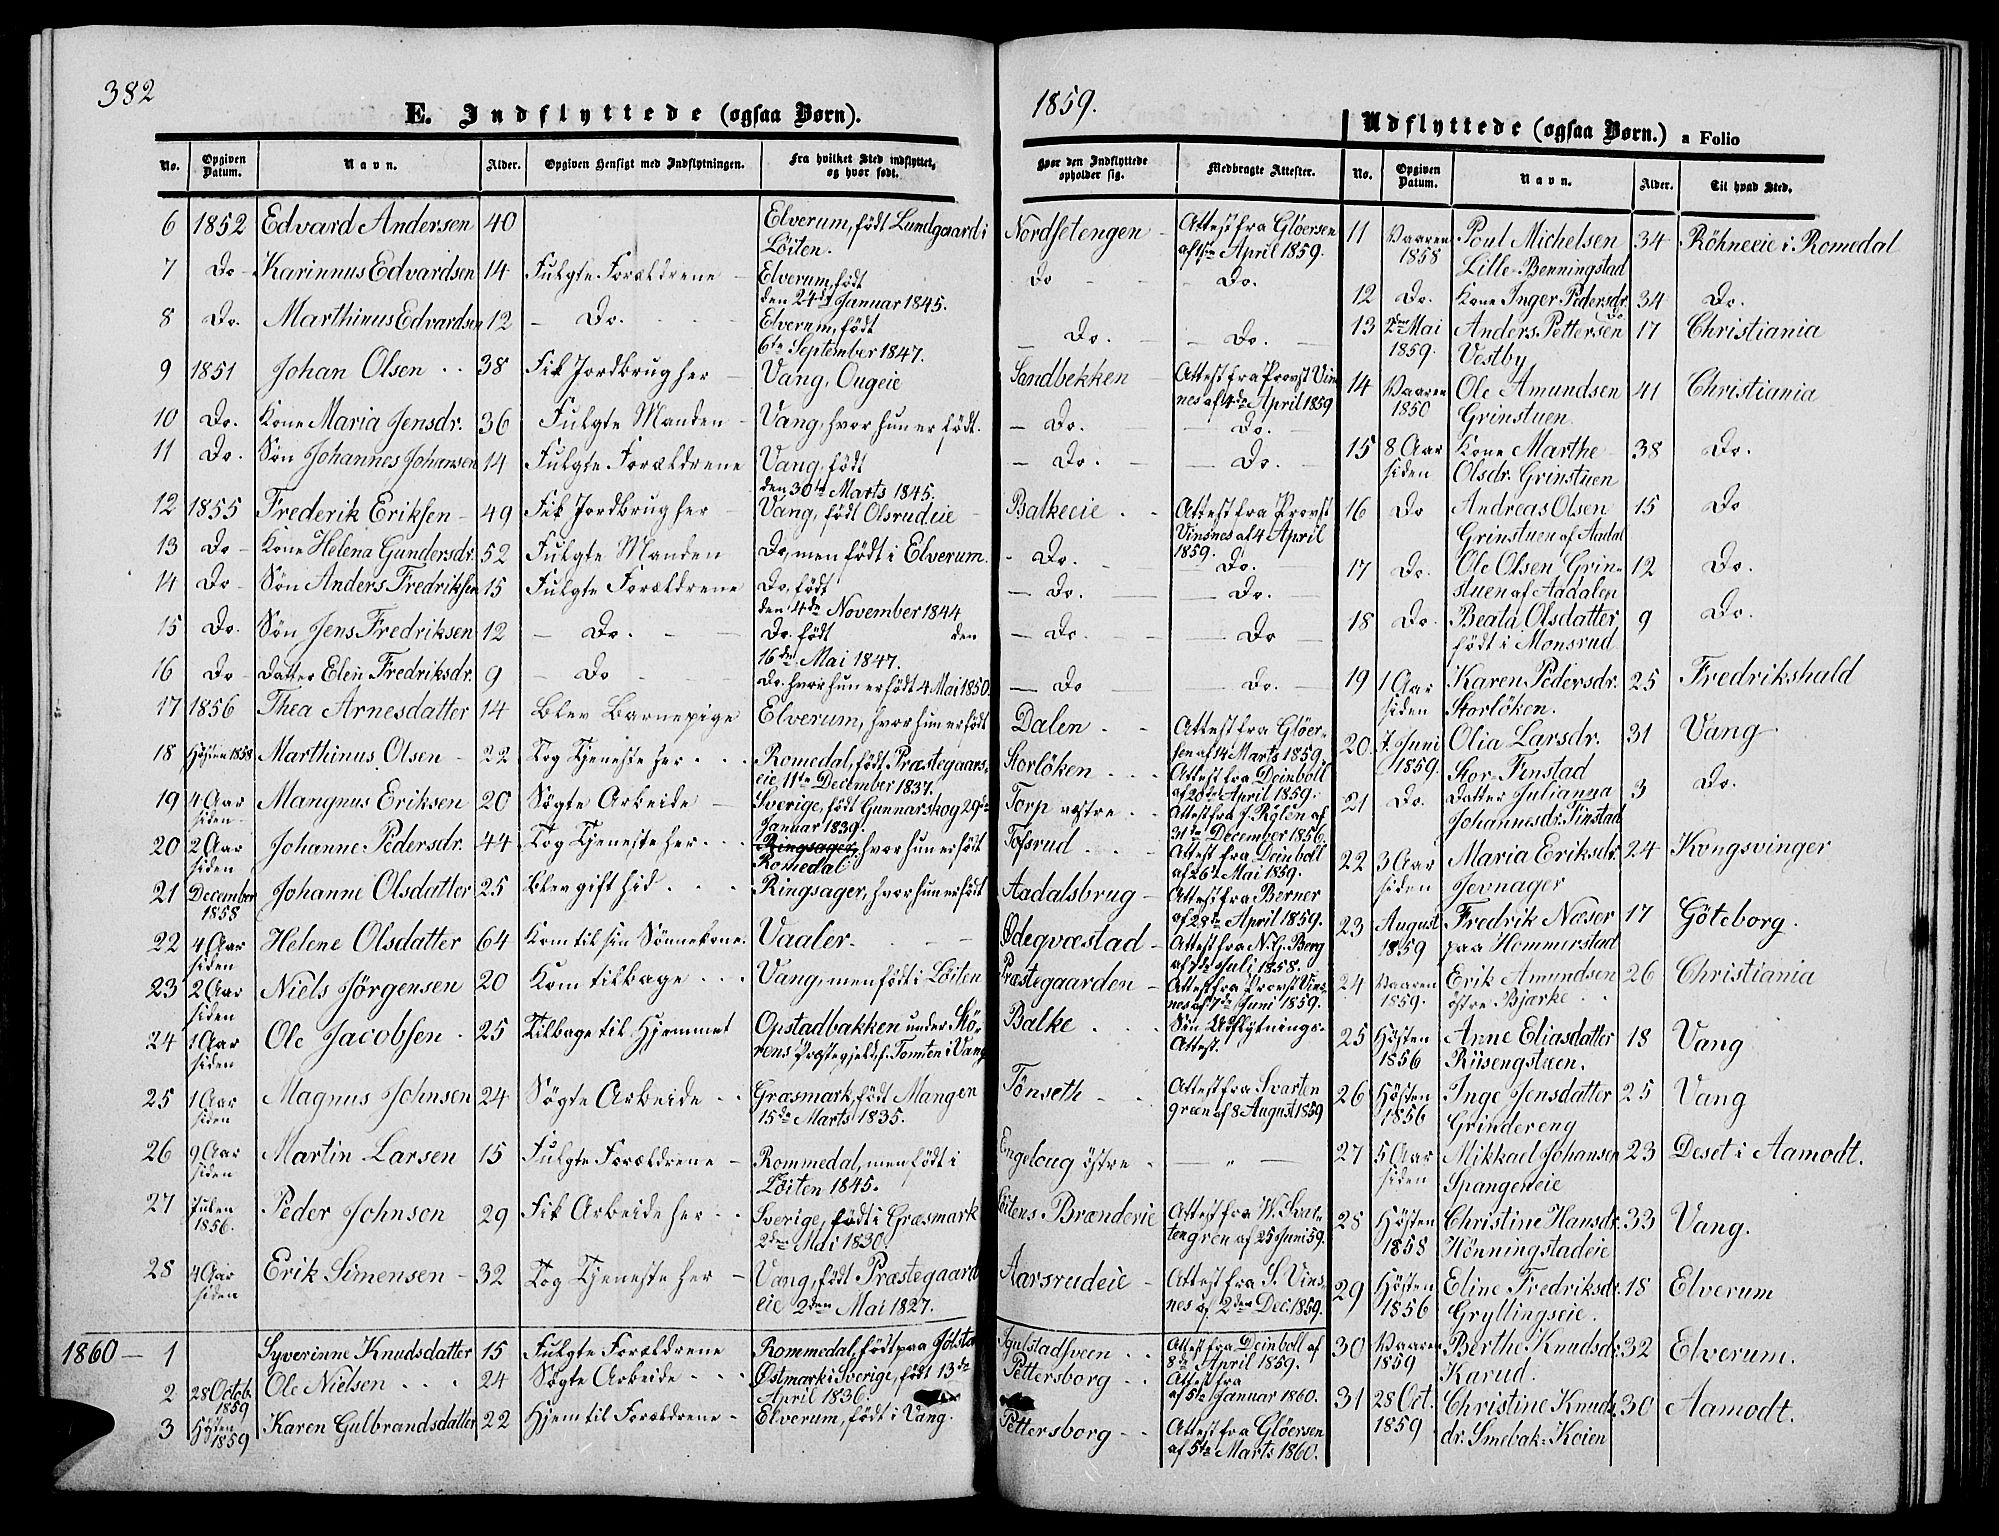 382
E. Indflyttede (ogsaa Børn).
No. Opgiven Datum. Navn. Alder. Opgiven Hensigt med Indflytningen. Fra hvilket Sted indflyttet, og hvor født.
6 1852 Edvard Andersen 40 Elverum, født Lundgaard i
Löiten.
7 Do Karinnus Edvardsen 14 Fulgte Forældrene Elverum, født
den 24de Januar 1845.
8 Do. Marthinus Edvardsen 12 Do. Elverum, født
6te September 1847.
9 1851 Johan Olsen 38 Fik Jordbrug her Vang, Ougeie
10 Do. Kone Maria Jensdr. 36 Fulgte Manden Vang, hvor hun er født.
11 Do. Søn Johannes Johansen 14 Fulgte Forældrene Vang, født
den 30te Marts 1845.
12 1855 Frederik Eriksen 49 Fik Jordbrug her Vang, født Olsrudeie
13 Do Kone Helena Gundersdr. 52 Fulgte Manden Do, men født i Elverum.
14 Do Søn Anders Fredriksen 15 Fulgte Forældrene Do, født
den 4de November 1844
15 Do. Søn Jens Fredriksen 12 Do. Do. født den
16de Mai 1847.
16 Do Datter Elen Fredriksdr. 9 Do Do. hvor hun er født 4 Mai 1850.
17 1856 Thea Arnesdatter 14 Blev Barnepige Elverum, hvor hun er født
18 Høsten 1858 Marthinus Olsen 22 Tog Tjeneste her Romedal, født Præstegaars-
eie 11te December 1837.
19 4 Aar siden Mangnus Eriksen 20 Søgte Arbeide Sverige, født Gunnarskog 29de
Januar 1839.
20 2 Aar siden Johanne Pedersdr. 44 Tog Tjeneste her Ringsager, hvor hun er født
Romedal
21 December 1858 Johanne Olsdatter 25 Blev gift hid Ringsager, hvor hun er født
22 4 Aar siden Helene Olsdatter 64 Kom til sin Sønnekone. Vaaler.
23 2 Aar siden Niels Jörgensen 20 Kom tilbage Vang, men født i Löiten
24 1 Aar siden Ole Jacobsen 25 Tilbage til Hjemmet Opstadbakken under Stö-
rens Præstegjeld, f. Tomten i Vang
25 1 Aar siden Magnus Johnsen 24 Søgte Arbeide Græsmark, født Mangen
15de Marts 1835.
26 9 Aar siden Martin Larsen 15 Fulgte Forældrene Rommedal, men født i
Löiten 1845.
27 Julen 1856. Peder Johnsen 29 Fik Arbeide her Sverige, født i Græsmark
2den Mai 1830.
28 4 Aar siden Erik Simensen 32 Tog Tjeneste her Vang, født Præstegaard
eie 2den Mai 1827.
1860 1 Syverinne Knudsdatter 15 Fulgte Forældrene Rommedal, født paa Jölsta
2 28 Octob. 1859 Ole Nielsen 24 Søgte Arbeide Østmark i Sverige, født 13de
April 1836.
3 Høsten 1859 Karen Gulbrandsdatter 22 Hjem til Forældrene Elverum, født i Vang.
1859.
Hvor den Indflyttede opholder sig. Medbragte Attester.
Nordsetengen Attest fra Glöersen
af 1ste April 1859.
Do Do.
Do. Do.
Sandbekken Attest fra Provst Vins-
nes af 4de April 1859
Do. Do.
Do. Do.
Balkeeie Attest fra Provst
Vinsnes af 4 April
1859.
Do. Do.
Do. Do.
Do. Do
Do Do.
Dalen Attest fra Glöer-
sen af 14 Marts 1859.
Storlöken Attest fra Deinboll
af 20de April 1859.
Torp østre Attest fra J. Rylen af
31de December 1856.
Tofsrud Attest fra Deinboll
af 26de Mai 1859.
Aadalsbrug Attest fra Berner
af 28de April 1859.
Ødeqvæstad Attest fra N. G. Berg
af 7de Juli 1858.
Præstegaarden Attest fra Provst Vins-
nes af 7de Juni 1859.
Balke Søn Udflytnings-
Attest.
Tönseth Attest fra Svarten
green af 8 August 1859
Engeloug östre "
Löitens Brænderie Attest fra W. Svar-
tengren af 25 Juni 59.
Aarsrudeie Attest fra S. Vins-
nes af 2den Dec. 1859.
Igulstadsveen Attest fra Deinboll af
8de April 1859.
Pettersborg Attest fra
af 5te Januar 1860.
Pettersborg Attest fra Glöersen
af 5te Marts 1860.
Udflyttede (ogsaa Børn.) a Folio
No. Opgiven Datum. Navn. Alder. Til hvad Sted.
11 Vaaren 1858 Poul Michelsen 34 Röhneeie i Romedal
Lille-Benningstad
12 Do. Kone Inger Pedersdr. Do 34 Do.
13 2den Mai 1859. Anders Pettersen 17 Christiania
Vestby
14 Vaaren 1850 Ole Amundsen 41 Christiania
Grinstuen.
15 8 Aar siden Kone Marthe 38 Do.
Olsdr. Grinstuen
16 Do Andreas Olsen 15 Do
Grinstuen af Aadal
17 Do. Ole Olsen Grin- 12 Do.
stuen af Aadalen
18 Do. Beata Olsdatter 9 Do.
født i Monsrud
19 1 Aar siden Karen Pedersdr. 25 Fredrikshald
Storlöken.
20 7. Juni 1859. Olia Larsdr. 31 Vang
Stor-Finstad
21 Do. Datter Julianna 3 Do.
Johannesdr. Finstad
22 3 Aar siden Maria Eriksdr. 24 Kongsvinger
Jevnager
23 August 1859 Fredrik Næser 17 Göteborg.
paa Hommerstad
24 Vaaren 1859. Erik Amundsen 26 Christiania
östre Bjærke
25 Høsten 1856 Anne Eliasdatter 18 Vang
Riisengstuen.
26 Høsten 1856 Inge Jensdatter 25 Vang
Grindereng
27 5 Aar siden Mikkael Johansen 23 Deset i Aamodt.
Spangeneie
28 Høsten 1858 Christine Hansdr. 33 Vang.
Hönningstadeie
29 Høsten 1856 Eline Fredriksdr. 18 Elverum
Gryllingseie.
30 Vaaren 1859 Berthe Knudsdr. 32 Elverum.
Karud.
31 28 Oct. 1859 Christine Knuds 30 Aamodt.
dr. Smebak-Koien